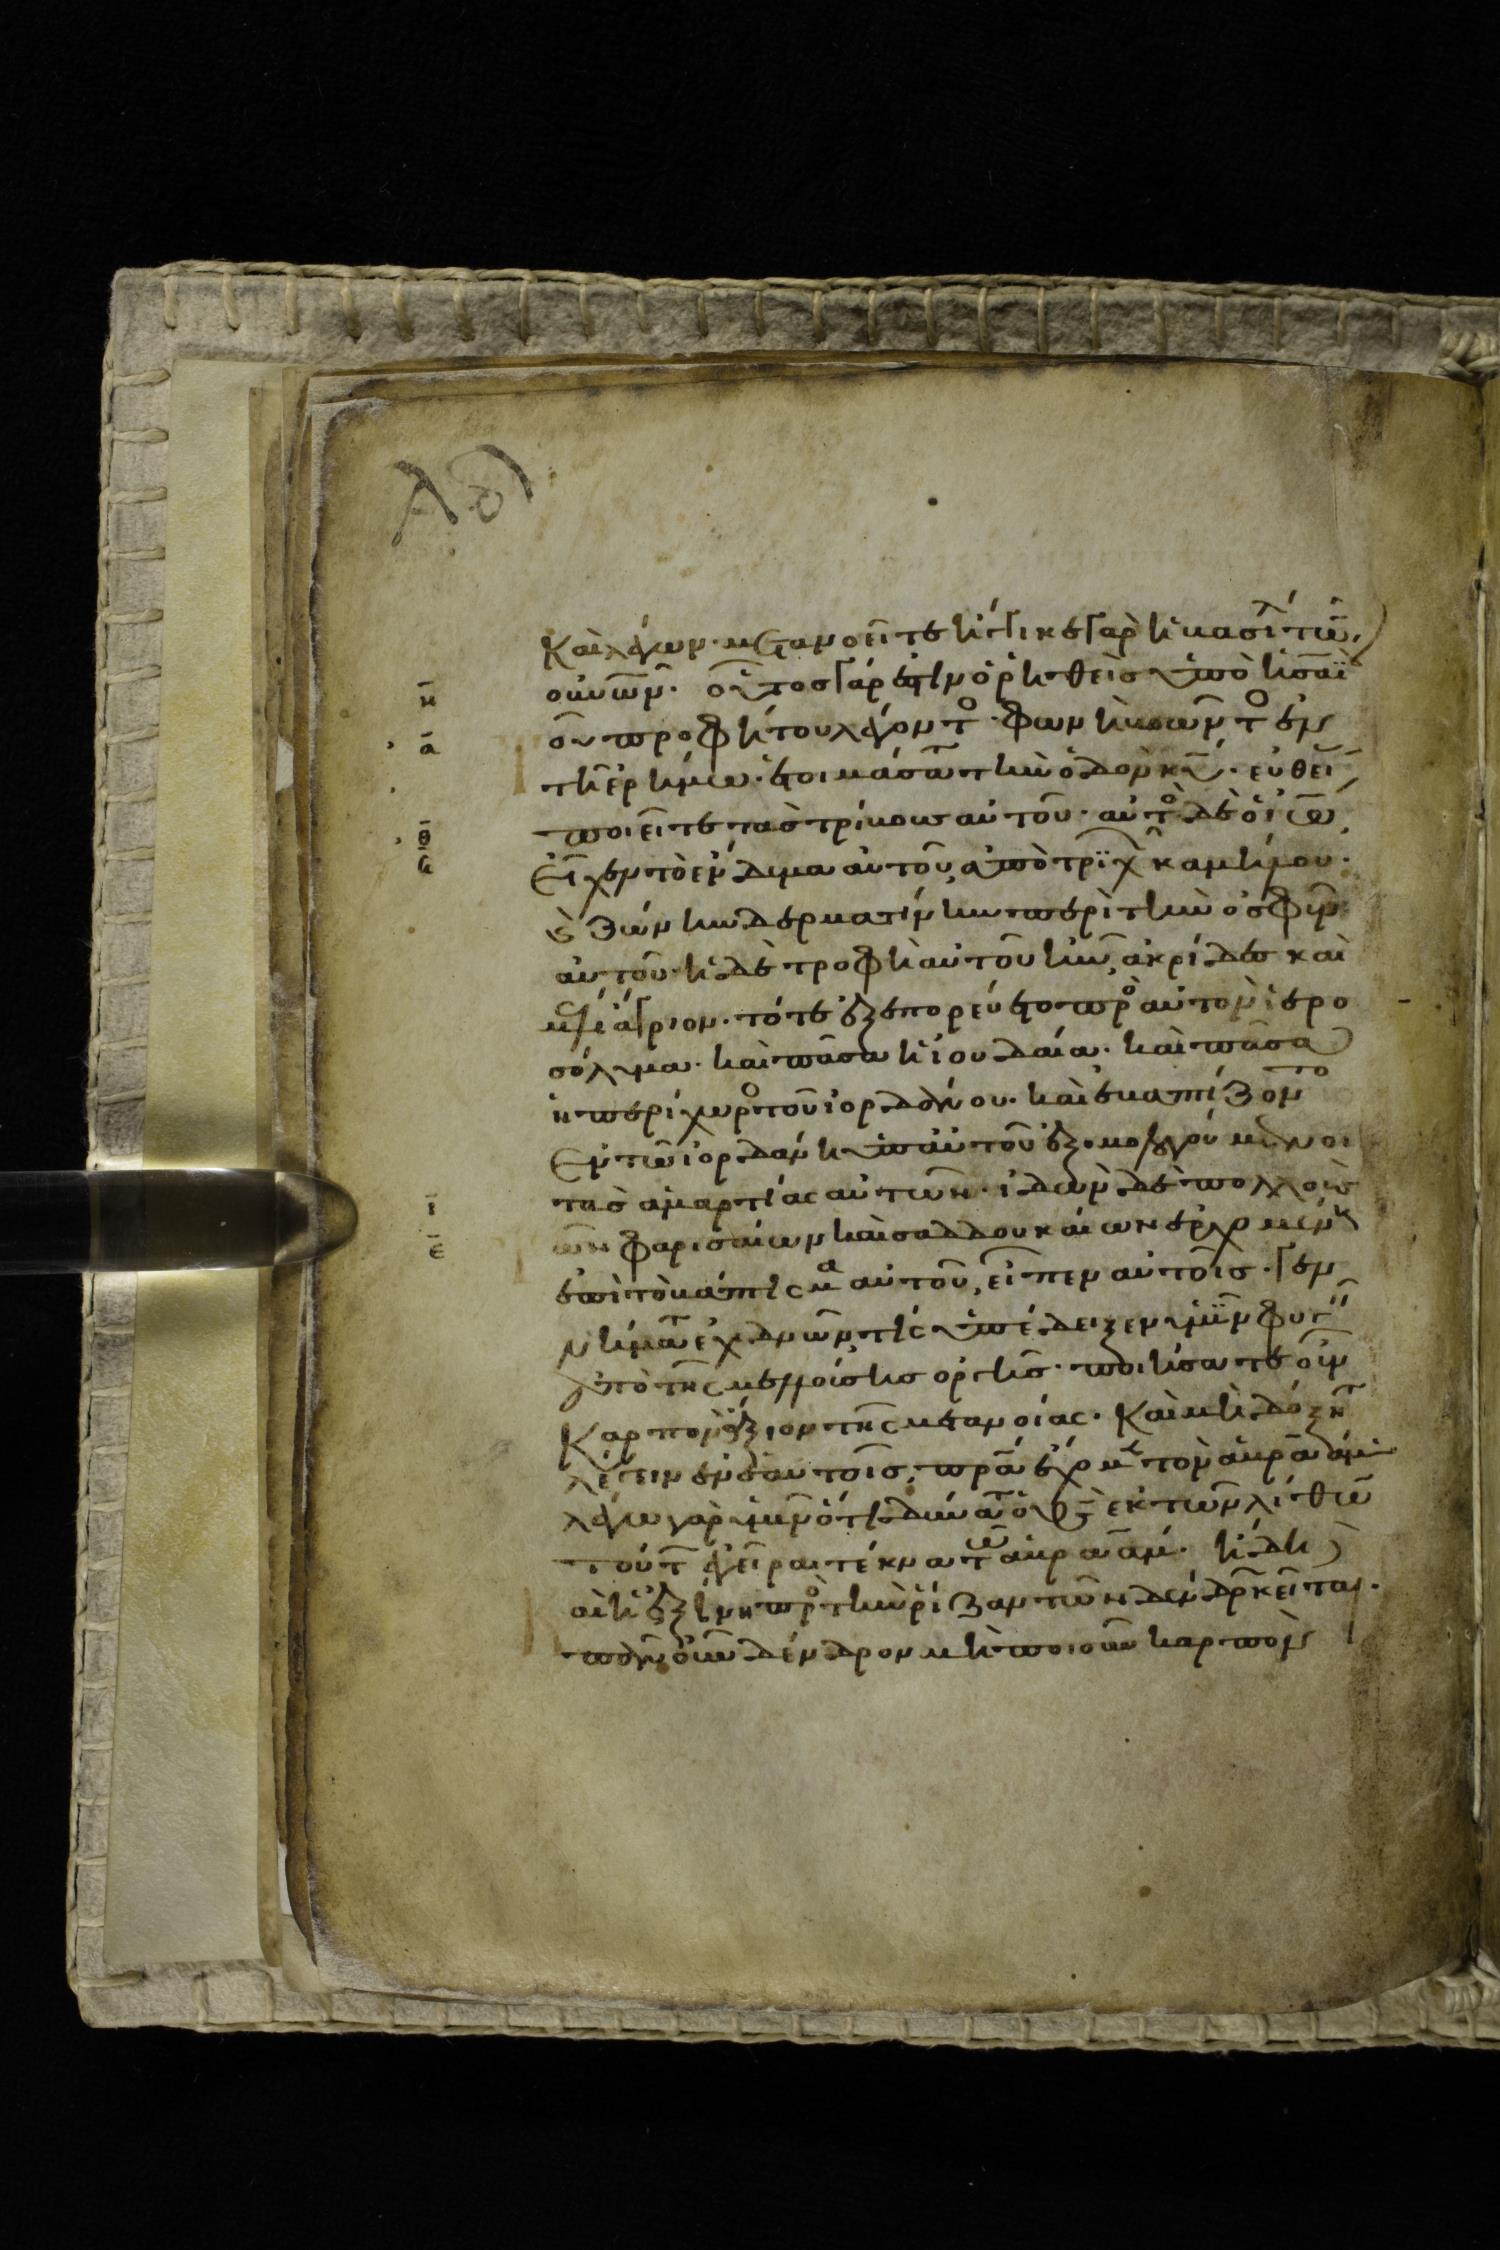 Καὶ λέγων· μετανοεῖτε ἤγγικε γὰρ ἡ βασιλεία τῶν
οὐνῶν· οὗτος γάρ ἐστιν ὁ ῥηθεὶς ὑπὸ ἠσαΐ
ου προφήτου λέγοντος· φωνὴ βοῶντος ἐν
τῇ ἐρήμω· ἑτοιμάσατε τὴν ὁδὸν κυ· εὐθείας
ποιεῖτε τὰς τρίβους αὐτοῦ· αὐτὸς δὲ ὁ ἰω
εἶχεν τὸ ἔνδυμα αὐτοῦ, ἀπὸ τριχῶν καμήλου·
ϗ ζώνην δερματίνην περὶ τὴν ὀσφὺν
αὐτοῦ· ἡ δὲ τροφὴ αὐτοῦ ἦν, ἀκρίδες καὶ
μέλι ἄγριον· τότε ἐξεπορεύετο πρὸς αὐτὸν ἱερο
σόλυμα· καὶ πᾶσα ἡ ἰουδαία· καὶ πᾶσα
ἡ περίχωρος τοῦ ἰορδάνου· καὶ ἐβαπτίζοντο
ἐν τῶ ἰορδάνη ὑπ αὐτοῦ ἐξομολογούμενοι
τὰς ἁμαρτίας αὐτῶν· ἰδὼν δὲ πολλοὺς
τῶν φαρισαίων καὶ σαδδουκαίων ἐρχομένους
ἐπὶ τὸ βάπτισμα αὐτοῦ, εἶπεν αὐτοῖς· γεν
νήματα ἐχιδνῶν τίς ὑπέδειξεν ὑμῖν φυγεῖν
ἀπὸ τῆς μελλούσης ὀργῆς· ποιήσατε οὖν
καρπὸν ἄξιον τῆς μετανοίας· καὶ μὴ δόξητε
λέγειν ἐν ἑαυτοῖς, πρα ἔχομεν τὸν ἀβραάμ
λέγω γὰρ ὑμῖν ὅτι δύναται ὁ θς ἐκ τῶν λίθων
τούτων ἐγεῖραι τέκνα τῶ ἀβραάμ· ἤδη
ἡ ἀξίνη πρὸς τὴν ῥίζαν τῶν δένδρων κεῖται·
πᾶν οὖν δένδρον μὴ ποιοῦν καρπὸν